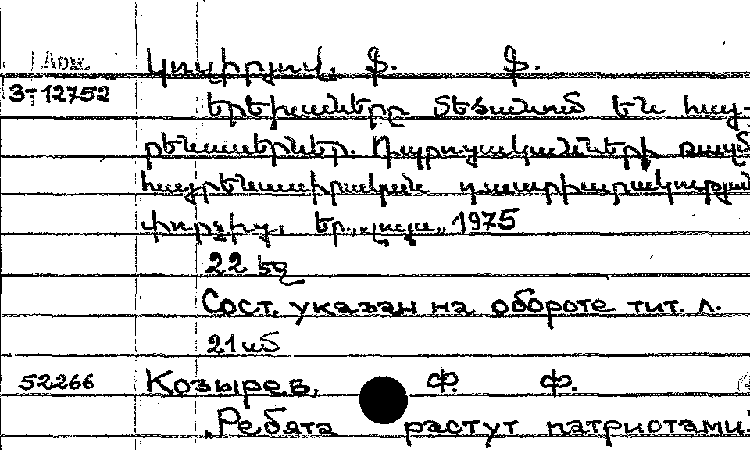 Арм.
Կոզիրյով, Ֆ. Ֆ.
3-12752
Երեխաները դեռանում են հայ-
րենասերներ. Դպրոցականների ռազմ
հայրենասիրական դաստիարակության
փորձից. Եր., „Լույս„, 1975
22 էջ
Сост. указан на обороте тит. л.
21 и 5
52266 Козырев, Ф. Ф.
„Ребята растут патриотами.